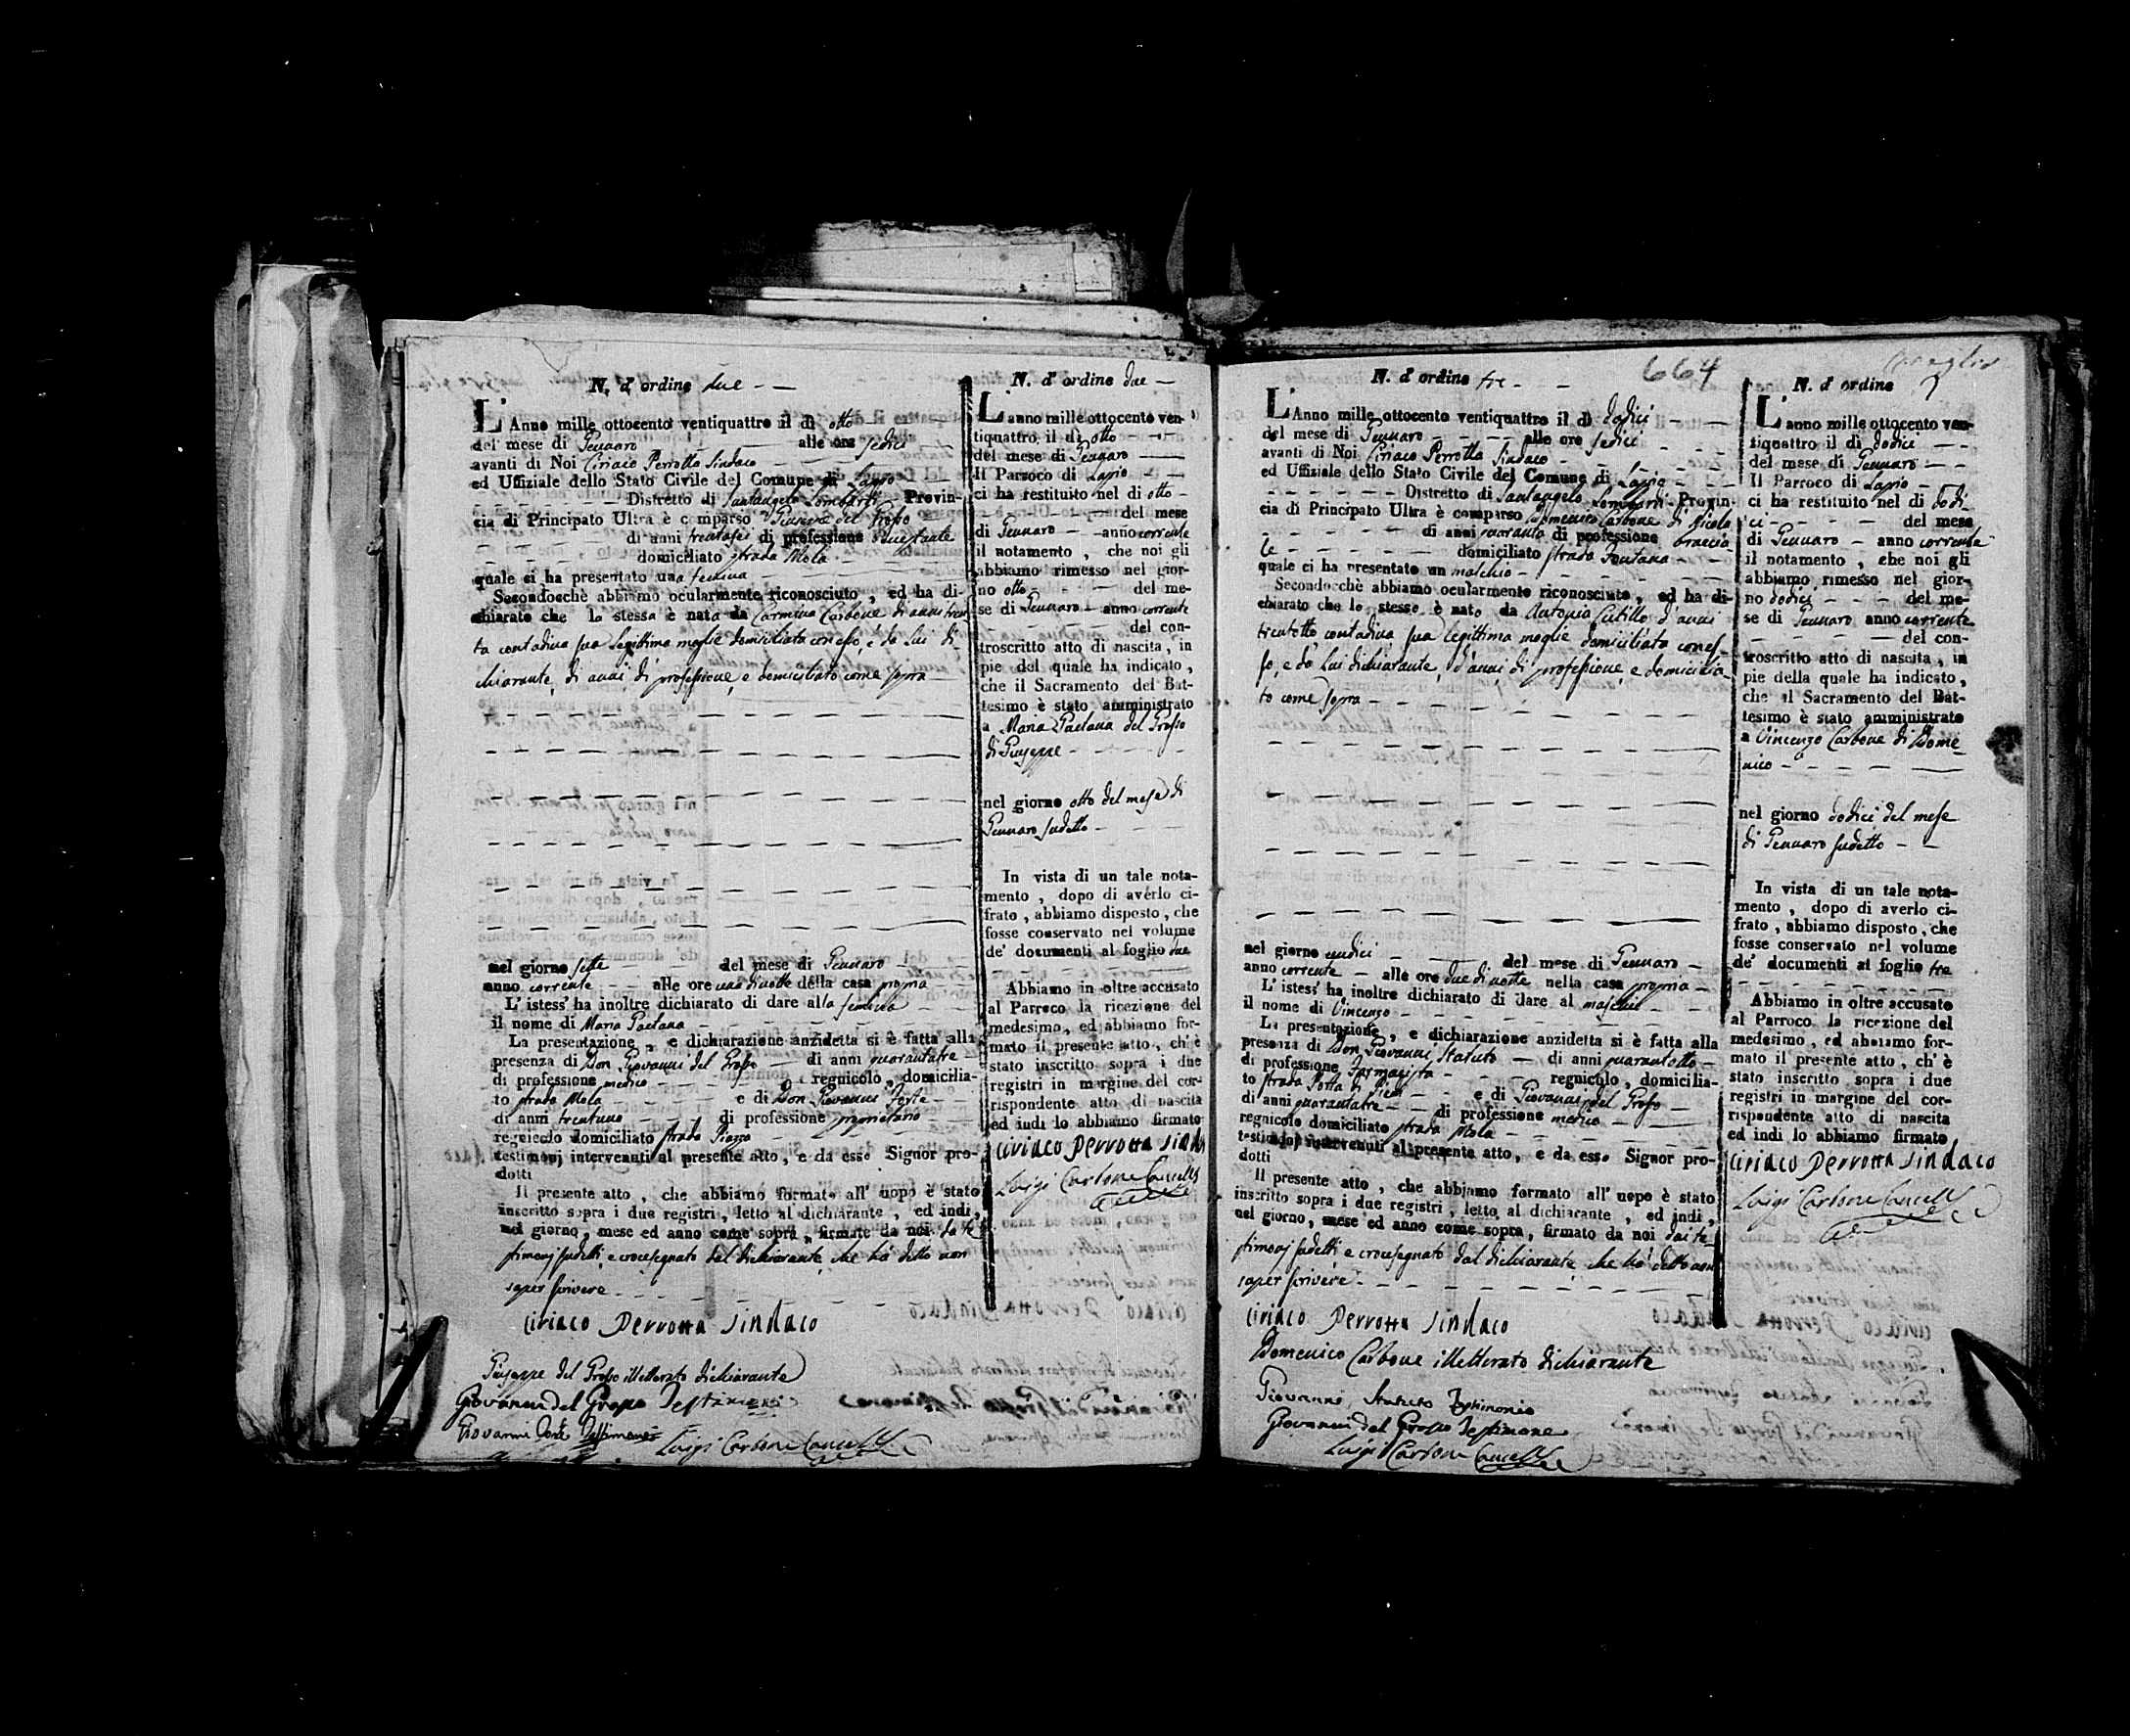 N. d' ordine due
L'Anno mille ottocento ventiquattro il di otto
del mese di Gennaro alle ore sedici
avanti di Noi Ciriaco Perrotta Sindaco
ed Uffiziale dello Stato Civile del Comune di Lapio
Distretto di Santangelo Lombardi Provin-
cia di Principato Ultra è comparso Giuseppe del Grosso
di anni trentasei di professione
domiciliato strada Mola
quale ci ha presentato una femina
Secondocchè abbiamo ocularmente riconosciuto, ed ha di-
chiarato che la stessa è nata da Carmina Carbone di anni tren
ta contadina sua legittima moglie domiciliata con esso, e da lui di-
chiarante, di anni, di professione, e domiciliato come sopra
nel giorno sette del mese di Gennaro
anno corrente alle ore una di notte della casa propria
L' istess' ha inoltre dichiarato di dare alla femina
il nome di Maria Gaetana
La presentazione, e dichiarazione anzidetta si è fatta alla
presenza di Don Giovanni del Grosso di anni quarantatre
di professione medico regnicolo, domicilia-
to strada Mola e di Don Giovanni Forte
di anni trentuno di professione proprietario
regnicolo domiciliato strada Piazza
testimonj intervenuti al presente atto, e da esso Signor pro-
dotti
Il presente atto, che abbiamo formato all' uopo è stato
inscritto sopra i due registri, letto al dichiarante, ed indi,
nel giorno, mese ed anno come sopra, firmato da noi da te
stimonj sudetti, e crocesegnato dal dichiarante, che ha detto non
saper scrivere
Ciriaco Perrotta Sindaco
Giuseppe del Grosso illetterato dichiarante
Giovanni del Grosso Testimonio
Giovanni Forte Testimone
Luigi Carbone Cancell
N. d' ordine due
L'anno mille ottocento ven-
tiquattro il di otto
del mese di Gennaro
Il Parroco di Lapio
ci ha restituito nel di otto
del mese
di Gennaro anno corrente
il notamento, che noi gli
abbiamo rimesso nel gior-
no otto del me-
se di Gennaro anno corrente
del con-
troscritto atto di nascita, in
pie del quale ha indicato,
che il Sacramento del Bat-
tesimo è stato amministrato
a Maria Gaetana del Grosso
di Giuseppe
nel giorno otto del mese di
Gennaro sudetto
In vista di un tale nota-
mento, dopo di averlo ci-
frato, abbiamo disposto, che
fosse conservato nel volume
de' documenti al foglio due
Abbiamo in oltre accusato
al Parroco la ricezione del
medesimo, ed abbiamo for-
mato il presente atto, ch' è
stato inscritto sopra i due
registri in margine del cor-
rispondente atto di nascita
ed indi lo abbiamo firmato
Ciriaco Perrotta Sindaco
Luigi Carbone Cancell
N. d' ordine tre
664
L'Anno mille ottocento ventiquattro il di dodici
del mese di Gennaro alle ore sedici
avanti di Noi Ciriaco Perrotta Sindaco
ed Uffiziale dello Stato Civile del Comune di Lapio
Distretto di Santangelo Lombardi Provin-
cia di Principato Ultra è comparso Domenico Carbone di Nicola
di anni quaranta di professione braccia
le domiciliato strada Fontana
quale ci ha presentato un maschio
Secondocchè abbiamo ocularmente riconosciuto, ed ha di-
chiarato che lo stesso è nato da Antonia Cutillo d' anni
trentotto contadina sua legittima moglie domiciliata con es-
so, e da lui dichiarante, d'anni, di professione, e domicilia-
to come sopra
nel giorno undici del mese di Gennaro
anno corrente alle ore due di notte nella casa propria
L' istess' ha inoltre dichiarato di dare al maschio
il nome di Vincenzo
La presentazione, e dichiarazione anzidetta si è fatta alla
presenza di Don Giovanni Statuto di anni quarantotto
di professione Farmacista regnicolo, domicilia-
to strada Porta di Piedi e di Giovanni del Grosso
di anni quarantatre di professione medico
regnicolo domiciliato strada Mola
testimonj intervenuti al presente atto, e da esso Signor pro-
dotti
Il presente atto, che abbiamo formato all' uopo è stato
inscritto sopra i due registri, letto al dichiarante, ed indi,
nel giorno, mese ed anno come sopra, firmato da noi dai te-
stimonj sudetti, e crocesegnato dal dichiarante, che ha detto non
saper scrivere
Ciriaco Perrotta Sindaco
Domenico Carbone illetterato dichiarante
Giovanni Statuto Testimonio
Giovanni del Grosso Testimone
Luigi Carbone Cancell
N. d' ordine
L'anno mille ottocento ven-
tiquattro il di dodici
del mese di Gennaro
Il Parroco di Lapio
ci ha restituito nel di dodi-
ci del mese
di Gennaro anno corrente
il notamento, che noi gli
abbiamo rimesso nel gior-
no dodici del me-
se di Gennaro anno corrente
del con-
troscritto atto di nascita, in
pie della quale ha indicato,
che il Sacramento del Bat-
tesimo è stato amministrato
a Vincenzo Carbone di Dome
nico
nel giorno dodici del mese
di Gennaro sudetto
In vista di un tale nota-
mento, dopo di averlo ci-
frato, abbiamo disposto, che
fosse conservato nel volume
de' documenti al foglio tre
Abbiamo in oltre accusato
al Parroco la ricezione del
medesimo, ed abbiamo for-
mato il presente atto, ch' è
stato inscritto sopra i due
registri in margine del cor-
rispondente atto di nascita
ed indi lo abbiamo firmato
Ciriaco Perrotta Sindaco
Luigi Carbone Cancell